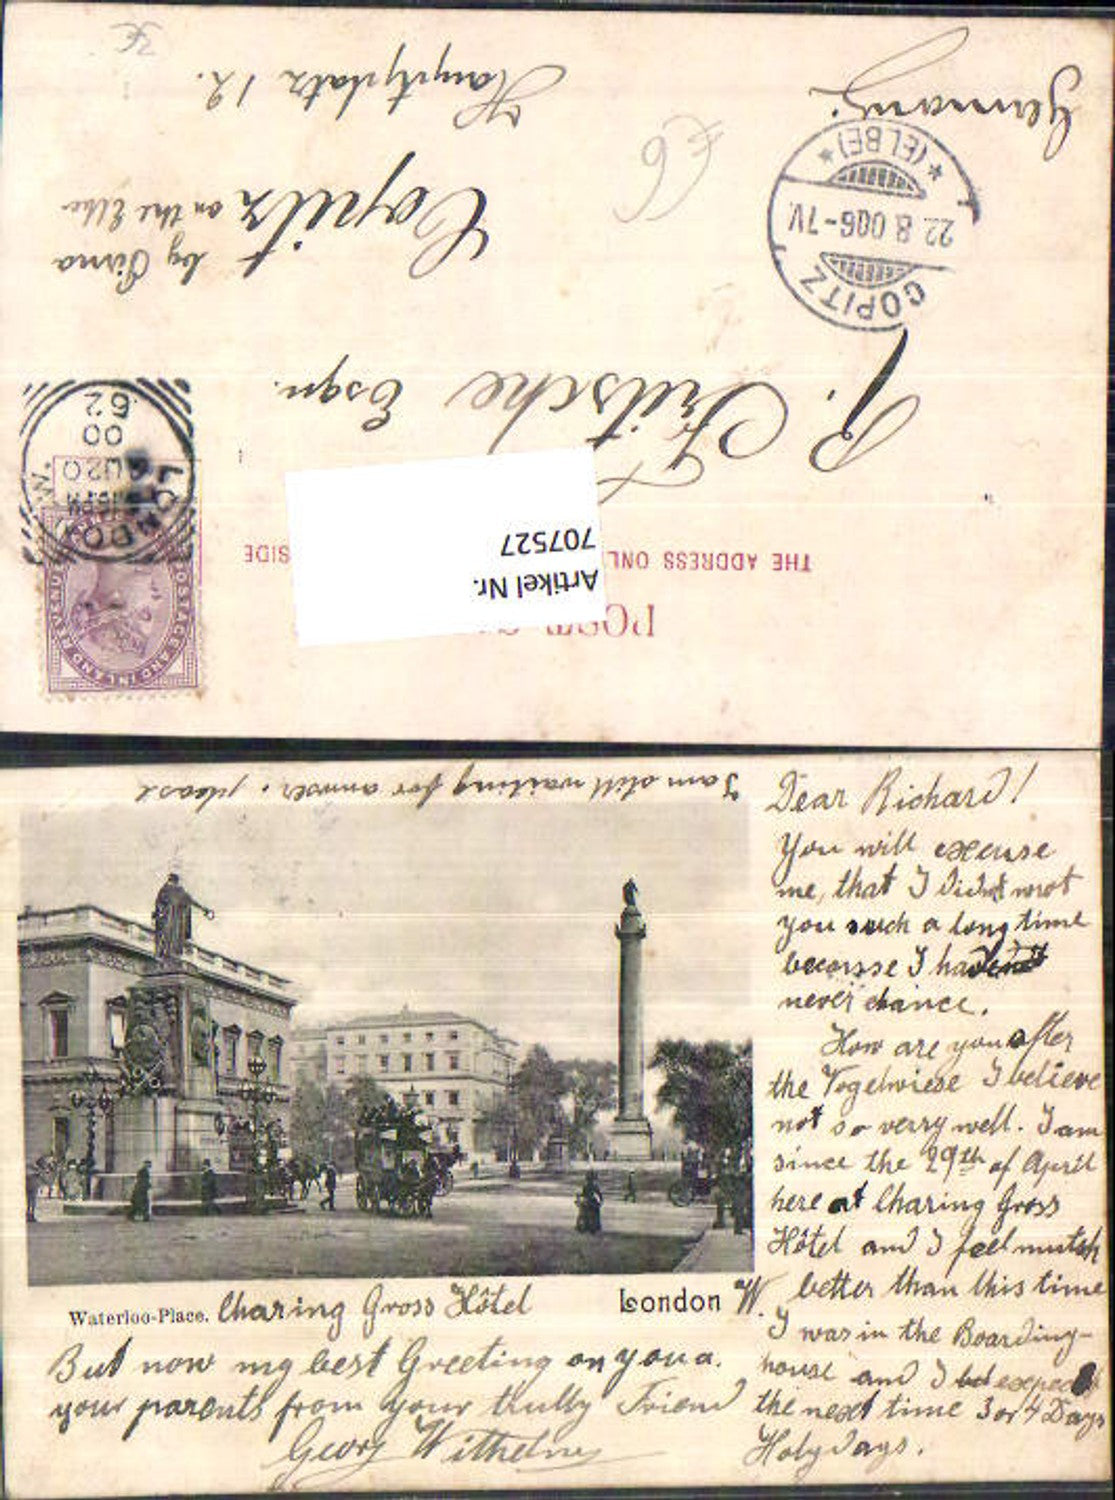 POST
THE ADDRESS ONL SIDE
Artikel Nr.
707527
R. Fritsche Esqu.
Copitz on the Elbe
by Pirna
Hauptplatz 12.
Germany.
€6
3€
COPITZ
22.8.00 6-7V.
*(ELBE)*
LONDON W.
00
62
POSTAGE AND INLAND REVENUE
I am still waiting for annser, please
Dear Richard!
You will excuse
me, that I didnt wrot
you such a long time
becorsse I
never chance.
How are you after
the Vogelwiese I believe
not so verry well. I am
since the 29th of April
here at Charing Gross
Hôtel and I feel mutsh
better than this time
I was in the Boarding-
house and I
the next time 3 or 4 Days
Holydays.
Waterloo-Place. Charing Gross Hôtel London W.
But now my best Greeting on you a.
your parents from your Friend
Georg